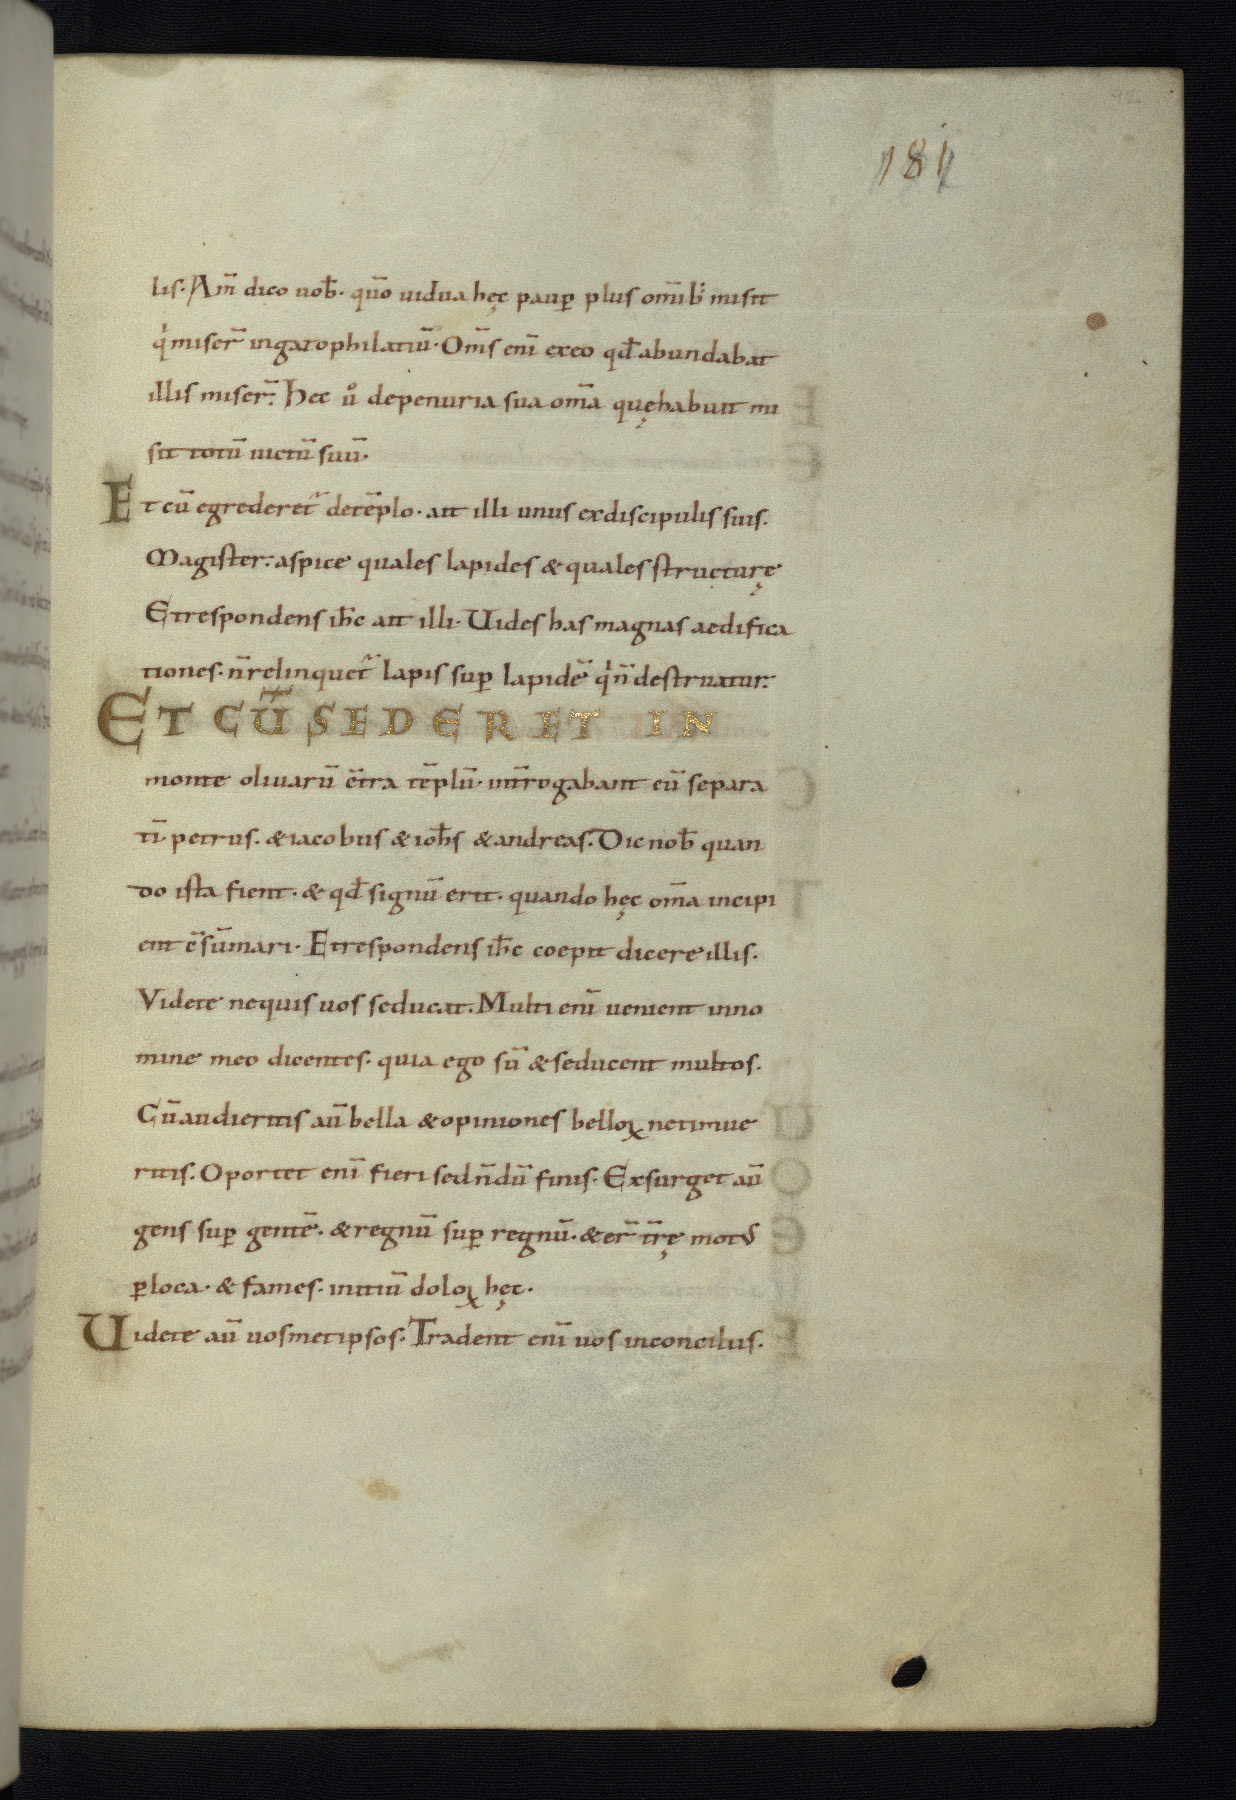 181
lis. Am̄ dico uob̄. quō uidua hęc paup̱ plus om̄ib; misit
q'miser̄ ingazophilatiū. Om̄s eni̅ exeo qd̄ abundabat
illis miser̄. Hec ů depenuria sua om̄a quęhabuit mi
sit totū uictū suū.
Et cū egrederet̃ detēplo. ait illi unus exdiscipulis suis.
Magister. aspice quales lapides & quales structurę
Etrespondens ih̄c ait illi. Uides has magnas aedifica
tiones. n̄ relinquet̃ lapis sup̱ lapidē q'n̄ destruatur.
ET CŪ SEDERET IN
monte oliuarū c̄tra tēplū. int̄rogabant eū separa
ti̅ petrus. & iacobus & ioh̄s & andreas. Dic nob̄ quan
do ista fient. & qd̄ signū erit. quando hęc om̄a incipi
ent c̄sūmari. Etrespondens ih̄c coepit dicere illis.
Videte nequis uos seducat. Multi eni̅ uenient inno
mine meo dicentes. quia ego sū & seducent multos.
Cū audieritis aū bella & opiniones belloꝝ netimue
ritis. Oportet eni̅ fieri sedn̄dū finis. Exsurget aū
gens sup̱ gentē. & regnū sup̱ regnū. & er̄ t̄rę motus
ꝑ loca. & fames. initiū doloꝝ hęc.
Uidete aū uosmetipsos. Tradent eni̅ uos inconciliis.